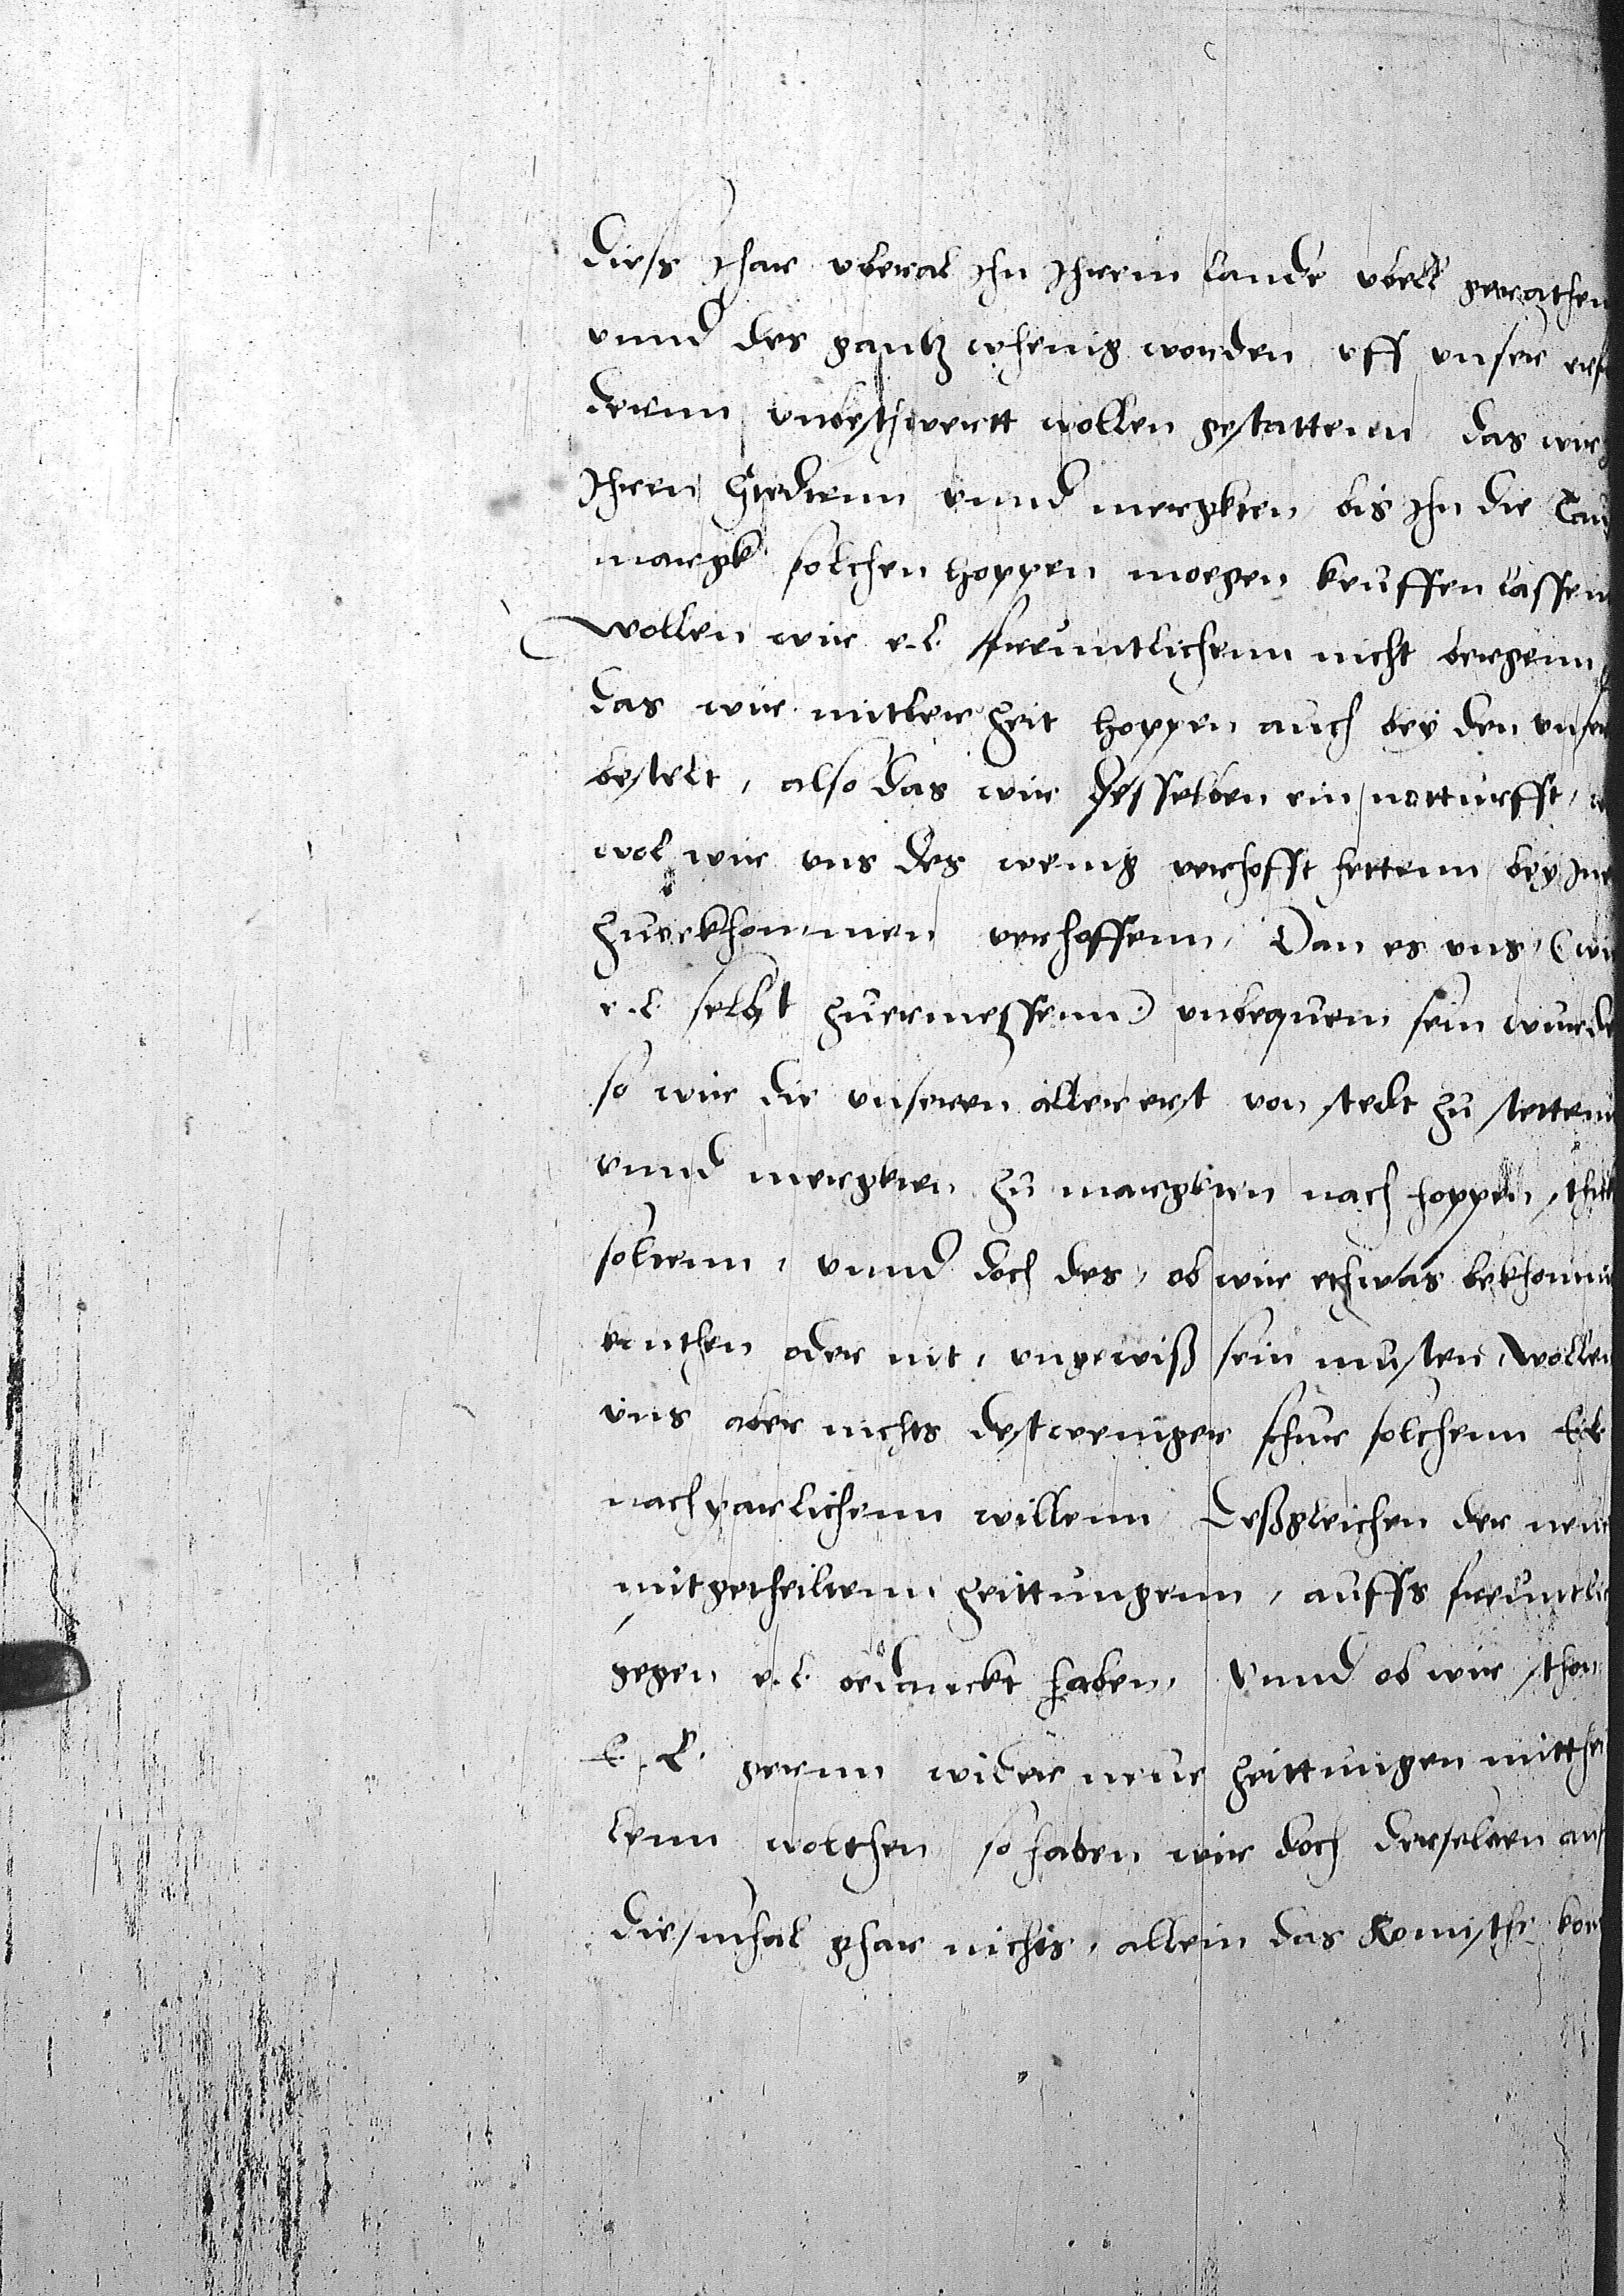 dieß Jhar vberal Jhn Jhrem lande vbell gerathen
vnnd des gantz whenig worden vff vnser erfo
dernn vnbeschwertt wollen gestattenn das wir
Jhren Stedtenn vnnd mergkten bis Jhn die
margk solchen hoppen moegen keuffen lassen
wollen wir e.l. freuntlichenn nicht bergenn
das wir mitler zeit hoppen auch bey den vnser
bestelt, also das wir desselben ein notturfft,
wol wir vns des wenig verhofft hettenn bey
zuerkhommen verhoffenn, Dan es vns, (wie
e.l. selbst zuermessenn) vnbequem sein wurde
so wir die vnseren aller erst von stedt zu stettenn
vnnd mergkten zu margkten nach hoppen schi
soltenn, vnnd doch des, ob wir ethwas bekhomm
konthen oder nit, vngewiß sein musten, wollen
vns aber nichts destweniger solchenn
nachparlichenn willenn Deßgleichen der neu
mitgetheiltenn zeittungenn, auffs freuntlic
gegen e.l. bedanckt haben, Vnnd ob wir schon
E.L. gernn wider neue zeittungen mitthei
lenn wolthen so haben wir doch derselben auf
diesmhal ghar nichts, allein das Romische kon